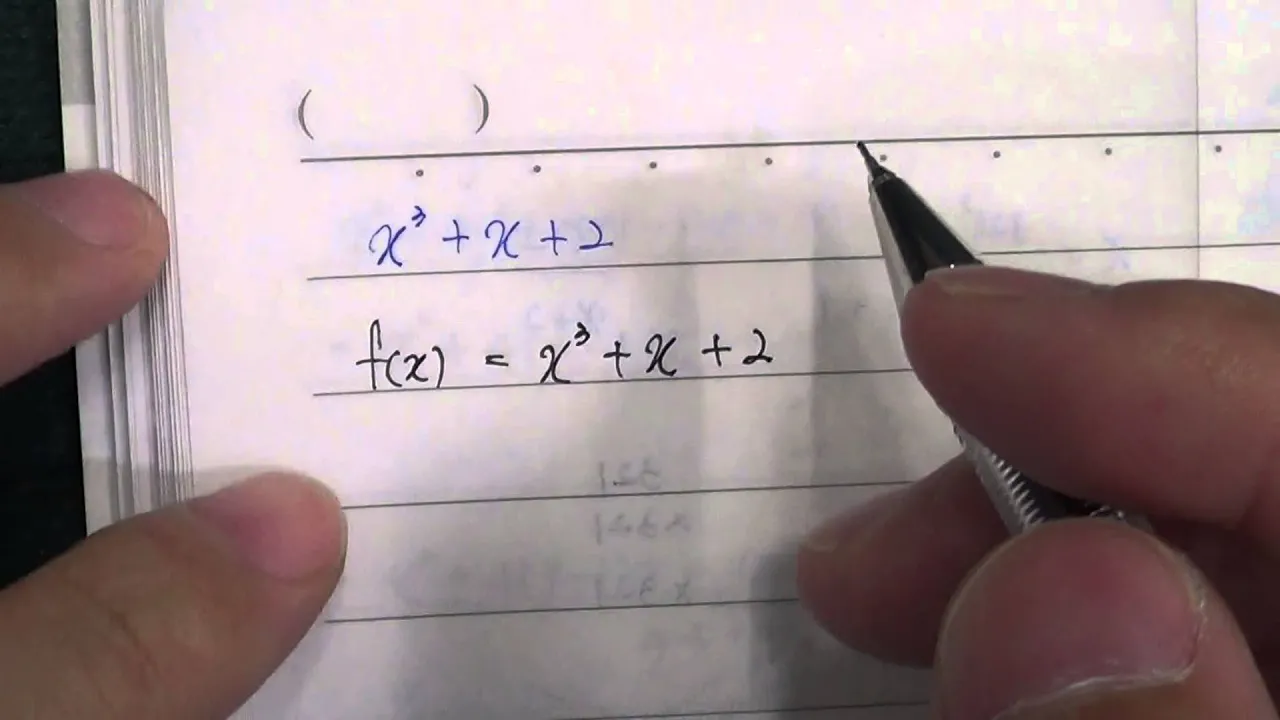 ( )
x³ + x + 2
f(x) = x³ + x + 2